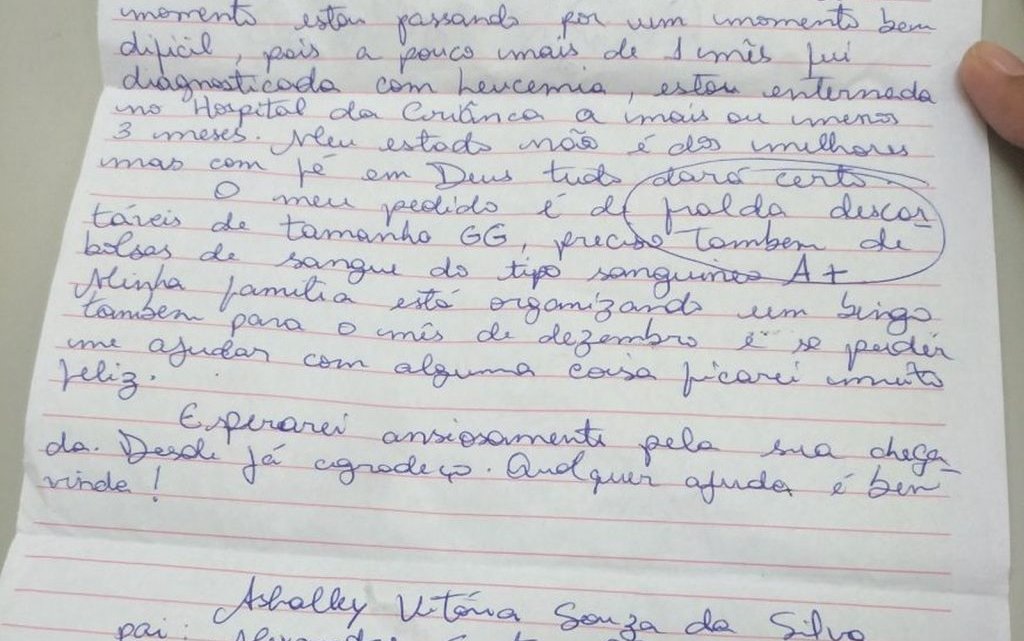 momento estou passando por um momento bem
dificil, pois a pouco mais de 1 mês fui
diagnosticada com Leucemia, estou enternada
no Hospital da Criânca a mais ou menos
3 meses. Meu estado não é dos melhores
mas com fé em Deus tudo dará certo.
O meu pedido é de fralda descar
táveis de tamanho GG, preciso tambem de
bolsas de sangue do tipo sanguineo A+
Minha família está organizando um bingo
tambem para o mês de dezembro e se puder
me ajudar com alguma coisa ficarei muito
feliz.
Esperarei ansiosamente pela sua chega
da. Desde já agradeço. Qualquer ajuda é bem
vinda!
Ashalley Vitória Souza da Silva
pai: